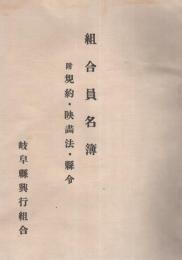 組合員名簿
附 規約・映畵法・縣令
岐阜縣興行組合